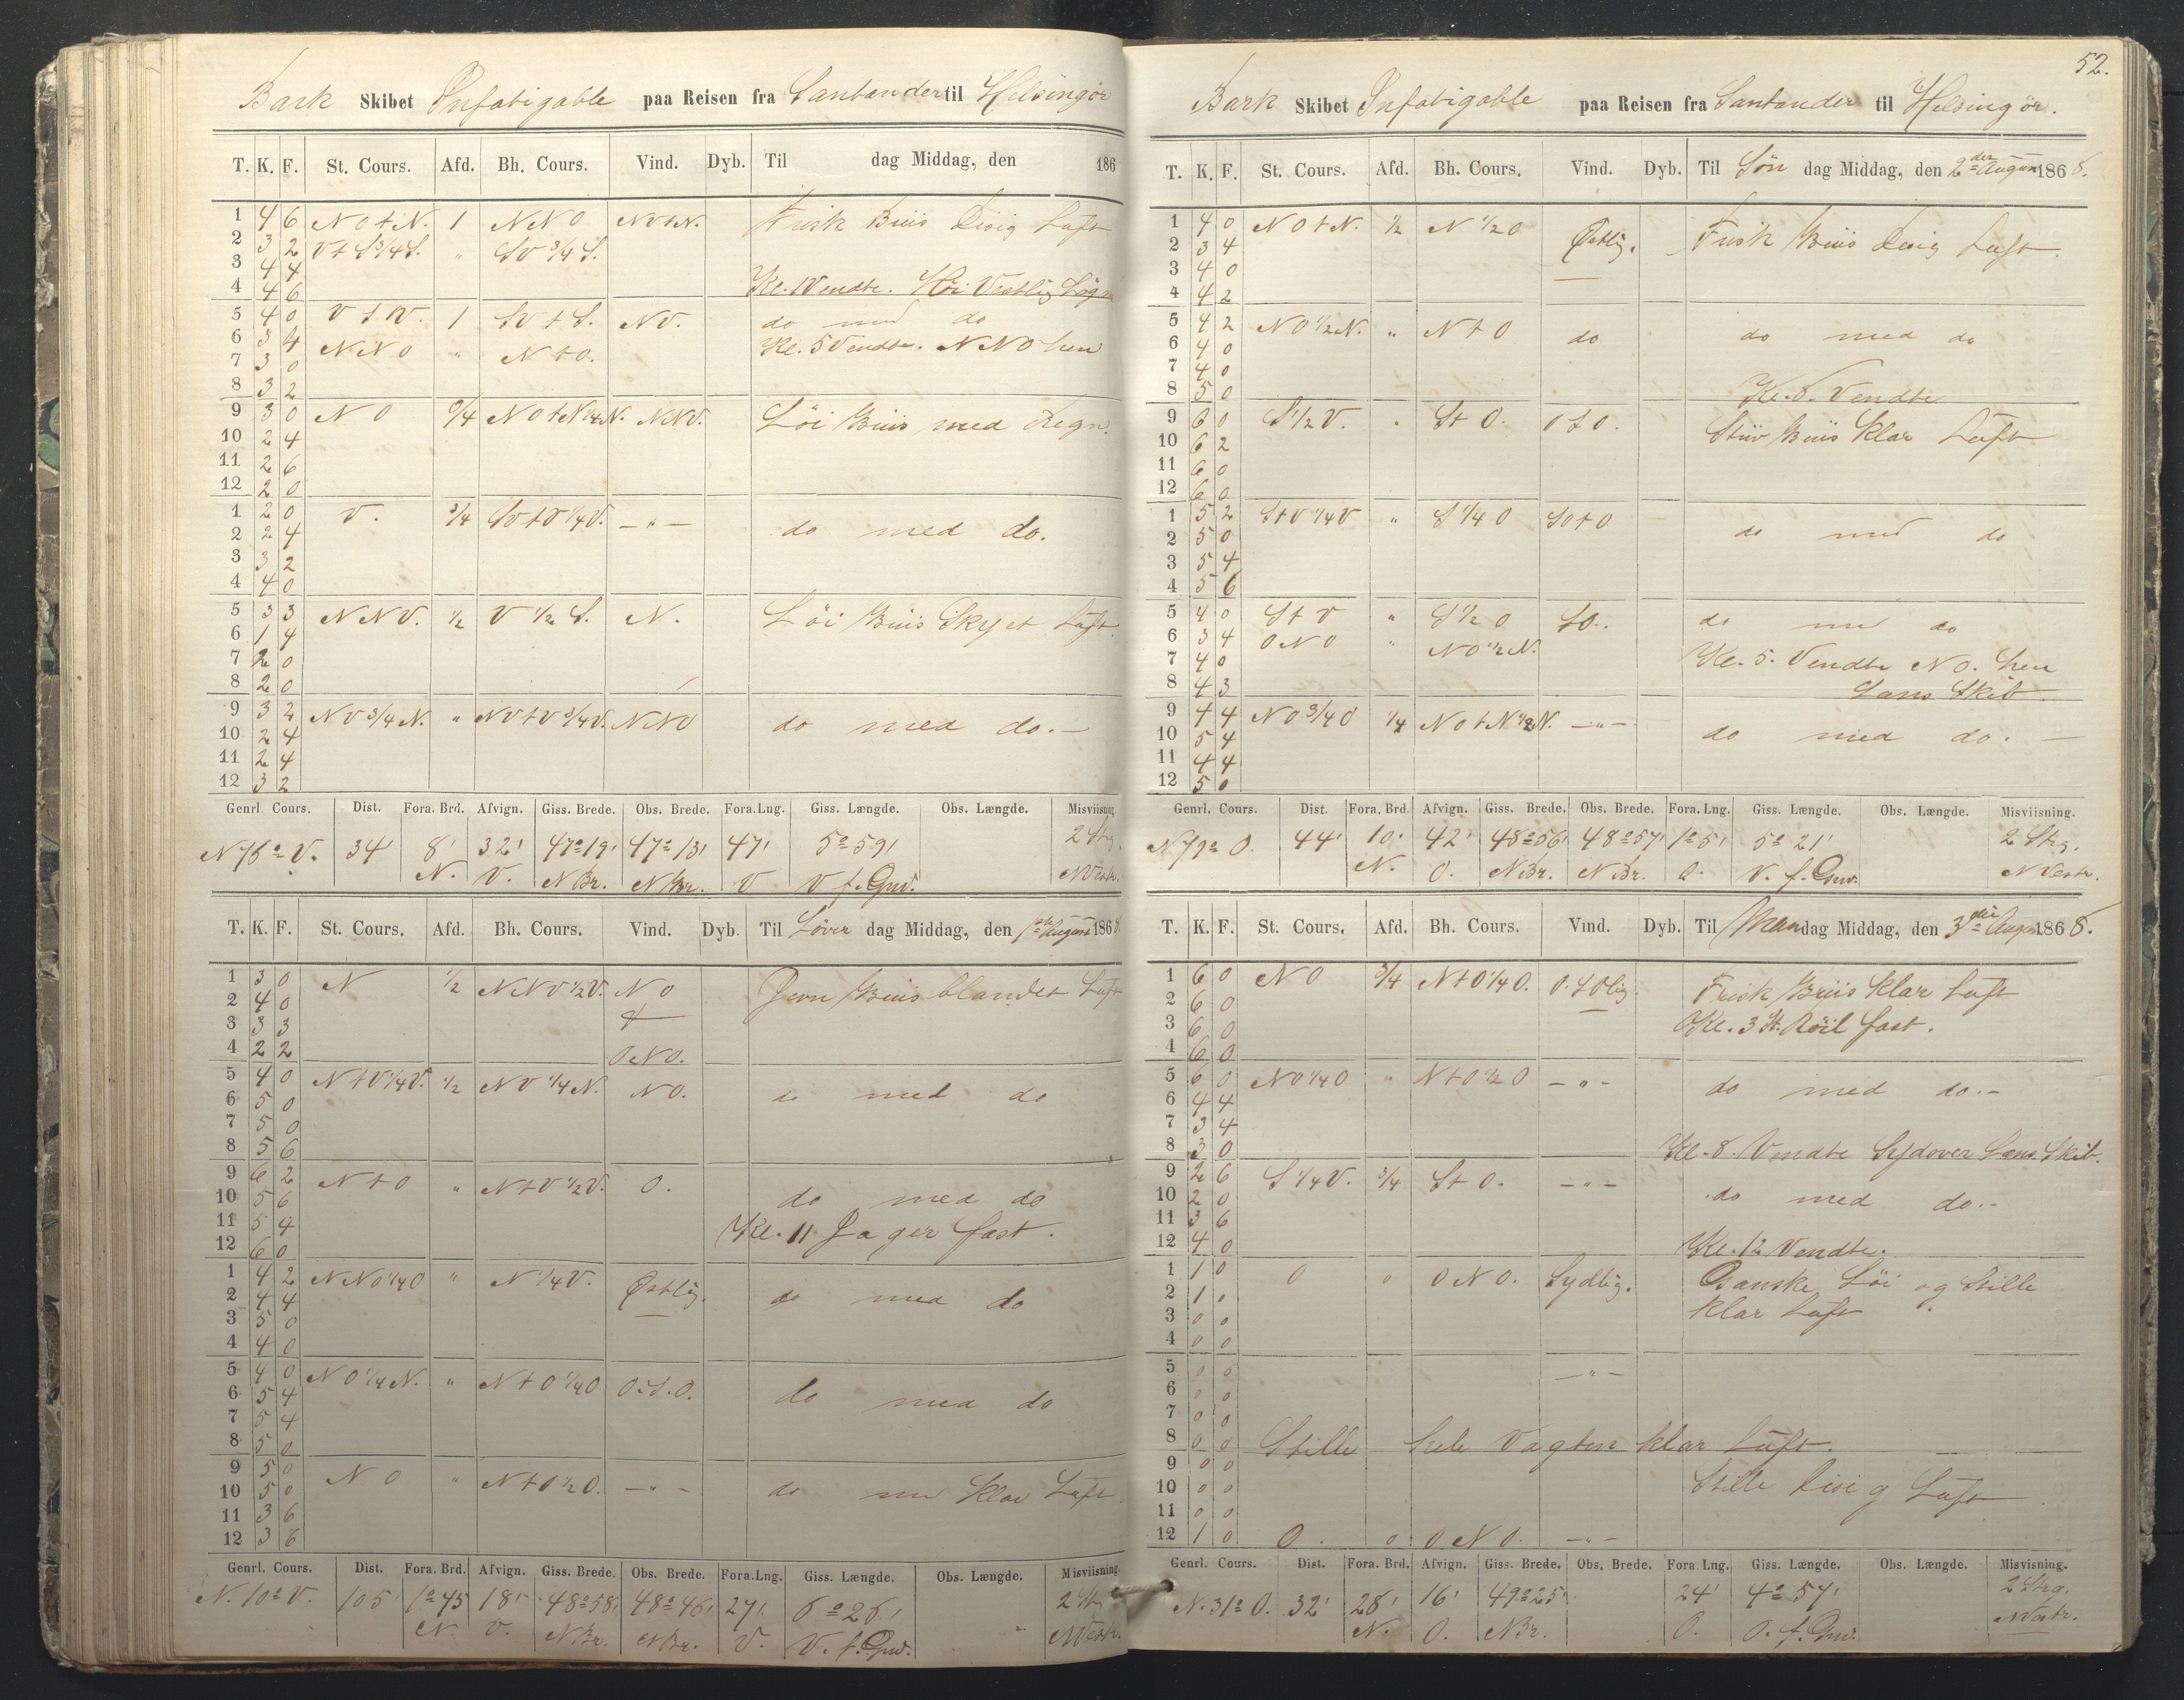 Bark Skibet Infatigable paa Reisen fra Santander til Helsingör
T. K. F. St. Cours. Afd. Bh. Cours. Vind. Dyb. Til dag Middag, den 186
1 4 6 N O t N. 1 N N O N O t N. Frisk Briis Disig Luft
2 3 2 V t S 3/4 S. " SV 3/4 S.
3 4 4
4 4 6 Kl. 1 Vendte. Höi Vestlig
5 4 0 V t N. 1 SV t S. NV. do med do
6 3 4 Kl. 5 Vendte. NNO hen
7 3 0 NNO " N t O.
8 3 2
9 3 0 N O 3/4 N O t N 1/4 N. NNV. Löi Briis med Regn.
10 2 4
11 2 6
12 2 0
1 2 0 V. 3/4 SV t V 1/4 V. — " — do med do.
2 2 4
3 3 2
4 4 0
5 3 3 NNV. 1/2 V 1/2 S. N. Löi Briis Skyet Luft.
6 1 4
7 2 0
8 2 0
9 3 2 NV 3/4 N. " NV t V 3/4 V. NNO do med do. —
10 2 4
11 2 4
12 3 2
Genrl. Cours. Dist. Fora. Brd. Afvign. Giss. Brede. Obs. Brede. Fora. Lng. Giss. Længde. Obs. Længde. Misviisning.
N 76° V. 34' 8' 32' 47° 19' 47° 13' 47' 5° 59' 2 Strg.
N. V. N Br. N Br. V V f. Grw. N Vestr.
T. K. F. St. Cours. Afd. Bh. Cours. Vind. Dyb. Til Löver dag Middag, den 1ste August 1868.
1 3 0 N 1/2 NNV 1/2 V. NO Jevn Briis blandet Luft
2 4 0
3 3 3
4 2 2 ONO.
5 4 0 N t V 1/4 V. 1/2 NV 1/4 N. NO. do med do
6 5 0
7 5 0
8 5 6
9 6 2 N t O " N t V 1/2 V. O. do med do
10 5 6
11 5 4 Kl. 11 Jager fast.
12 6 0
1 4 2 NNO 1/4 O " N 1/4 V. Østlig. do med do
2 4 4
3 5 0
4 4 0
5 4 0 NO 1/4 N. " N t O 1/4 O O.S.O. do med do
6 5 4
7 5 4
8 5 0
9 5 0 NO " N t O 1/2 O. — " — do med Klar Luft.
10 5 0
11 3 6
12 3 6
Genrl. Cours. Dist. Fora. Brd. Afvign. Giss. Brede. Obs. Brede. Fora. Lng. Giss. Længde. Obs. Længde. Misviisning.
N. 10° V. 105' 1° 45 18' 48° 58' 48° 46' 27' 6° 26' 2 Strg.
N. V. N Br. N Br. V. V. f. Grw. N Vestr.
52.
Bark Skibet Infatigable paa Reisen fra Santander til Helsingör.
T. K. F. St. Cours. Afd. Bh. Cours. Vind. Dyb. Til Søn dag Middag, den 2den August 1868.
1 4 0 N O t N. 1/2 N 1/2 O Østlig. Frisk Briis Disig Luft.
2 3 4
3 4 0
4 4 2
5 4 2 NO 1/2 N. " N t O do do med do
6 4 0
7 4 0
8 5 0 Kl. 8. Vendte
9 6 0 S 1/2 V. " S t O. O t O. Stiiv Briis Klar Luft
10 6 2
11 6 0
12 6 0
1 5 2 S t V 1/4 V " S 1/4 O SO t O do med do
2 5 0
3 5 4
4 5 6
5 4 0 S t V " S 1/2 O SO. do med do
6 3 4 ONO " NO 1/2 N.
7 4 0 Kl. 5. Vendte NO. hen
8 4 3 Lens Skib
9 4 4 NO 3/4 O 1/4 NO t N 1/2 N. — " — do med do. —
10 5 4
11 4 4
12 5 0
Genrl. Cours. Dist. Fora. Brd. Afvign. Giss. Brede. Obs. Brede. Fora. Lng. Giss. Længde. Obs. Længde. Misviisning.
N 79° O. 44' 10' 42' 48° 56' 48° 57' 1° 5' 5° 21' 2 Strg.
N. O. N Br. N Br. O. V. f. Grw. N Vestr.
T. K. F. St. Cours. Afd. Bh. Cours. Vind. Dyb. Til Man dag Middag, den 3die August 1868.
1 6 0 NO 3/4 N t O 1/4 O. O.SOlig. Frisk Briis Klar Luft
2 6 0
3 6 0 Kl. 3 St. Röil fast.
4 6 0
5 6 0 NO 1/4 O " N t O 1/2 O — " — do med do. —
6 4 4
7 3 4
8 3 0 Kl. 8. Vendte Sydover Lens Skib.
9 2 6 S 1/4 V. 3/4 S t O. — " — do med do. —
10 2 0
11 3 6
12 4 0 Kl. 12 Vendte.
1 1 0 O o ONO. Sydlig. Ganske Löi og Stille
2 1 0 klar Luft
3 0 0
4 0 0
5 0 0 — " —
6 0 0
7 0 0
8 0 0 Stille hele Vagten klar Luft.
9 0 0
10 0 0 Stille Disig Luft
11 0 0
12 1 0 O. o ONO. — " —
Genrl. Cours. Dist. Fora. Brd. Afvign. Giss. Brede. Obs. Brede. Fora. Lng. Giss. Længde. Obs. Længde. Misvisning.
N. 31° O. 32' 28' 16' 49° 25' 24' 4° 57' 2 Strg.
N. O. N Br. O. O. f. Grw. N Vestr.